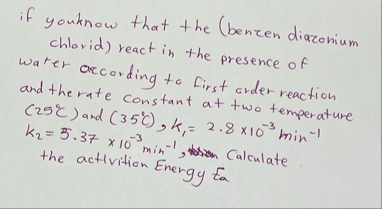 if you know that the (benzen diazonium
chlorid) react in the presence of
water according to first order reaction
and the rate constant at two temperature
(25℃) and (35℃), k₁ = 2.8 x10⁻³ min⁻¹
k₂ = 5.37 x10⁻³ min⁻¹, Calculate
the activition Energy Ea